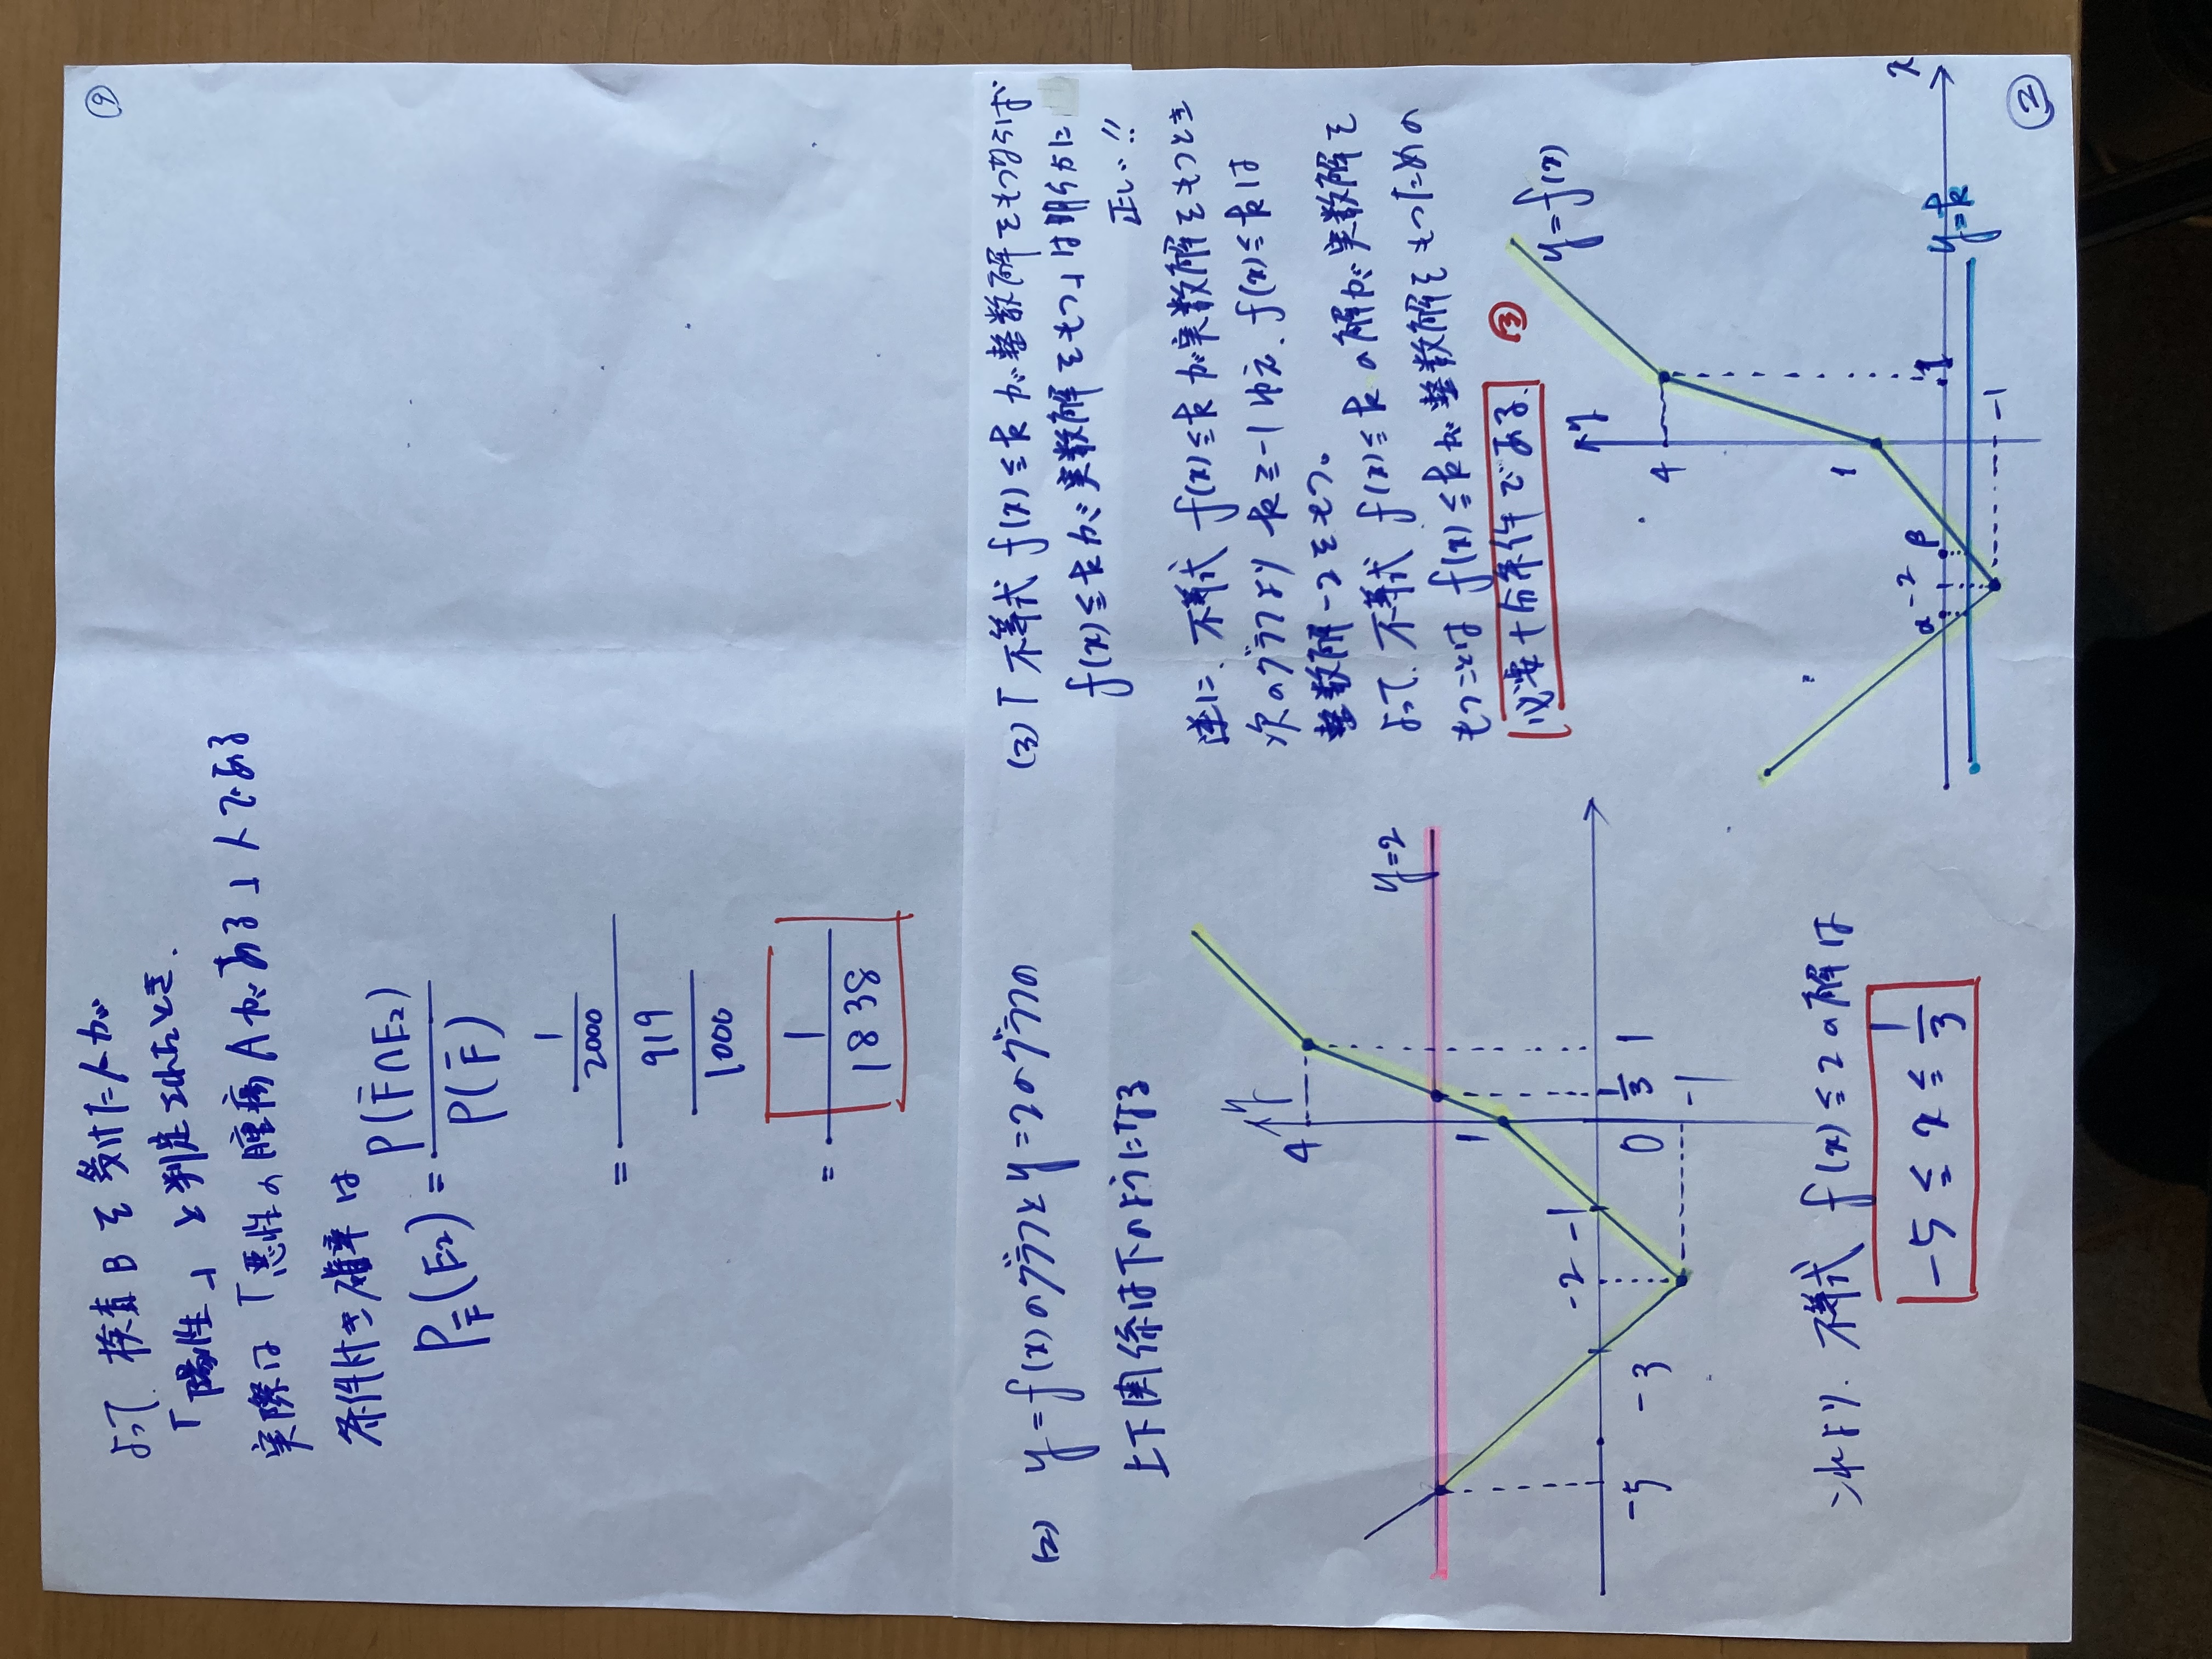 ⑨
よって、検査Bを受けた人が
「陽性」と判定されたとき、
実際は「悪性の腫瘍Aがある」人である
条件付き確率は
P_F̄(E₂) = P(F̄∩E₂) / P(F̄)
= 1/2000 / 919/1000
= 1/1838
(2) y=f(x)のグラフとy=2のグラフの
上下関係は下のようになる
y
4
y=2
1
-5
-3
-2
-1
0
1/3
1
-1
これより、不等式 f(x)≤2の解は
-5≤x≤1/3
(3)「不等式 f(x)≤k が整数解をもつならば
f(x)≤kが実数解をもつ」は明らかに
正しい!!
逆に、不等式 f(x)≤k が実数解をもつとき
次のグラフより k≥-1 ゆえ、f(x)≤kは
整数解-2をもつ。
よって、不等式 f(x)≤k の解が実数解を
もつことは f(x)≤k が整数解をもつための
必要十分条件である。 ③
y
y=f(x)
4
1
α
-2
β
1
x
y=k
-1
②